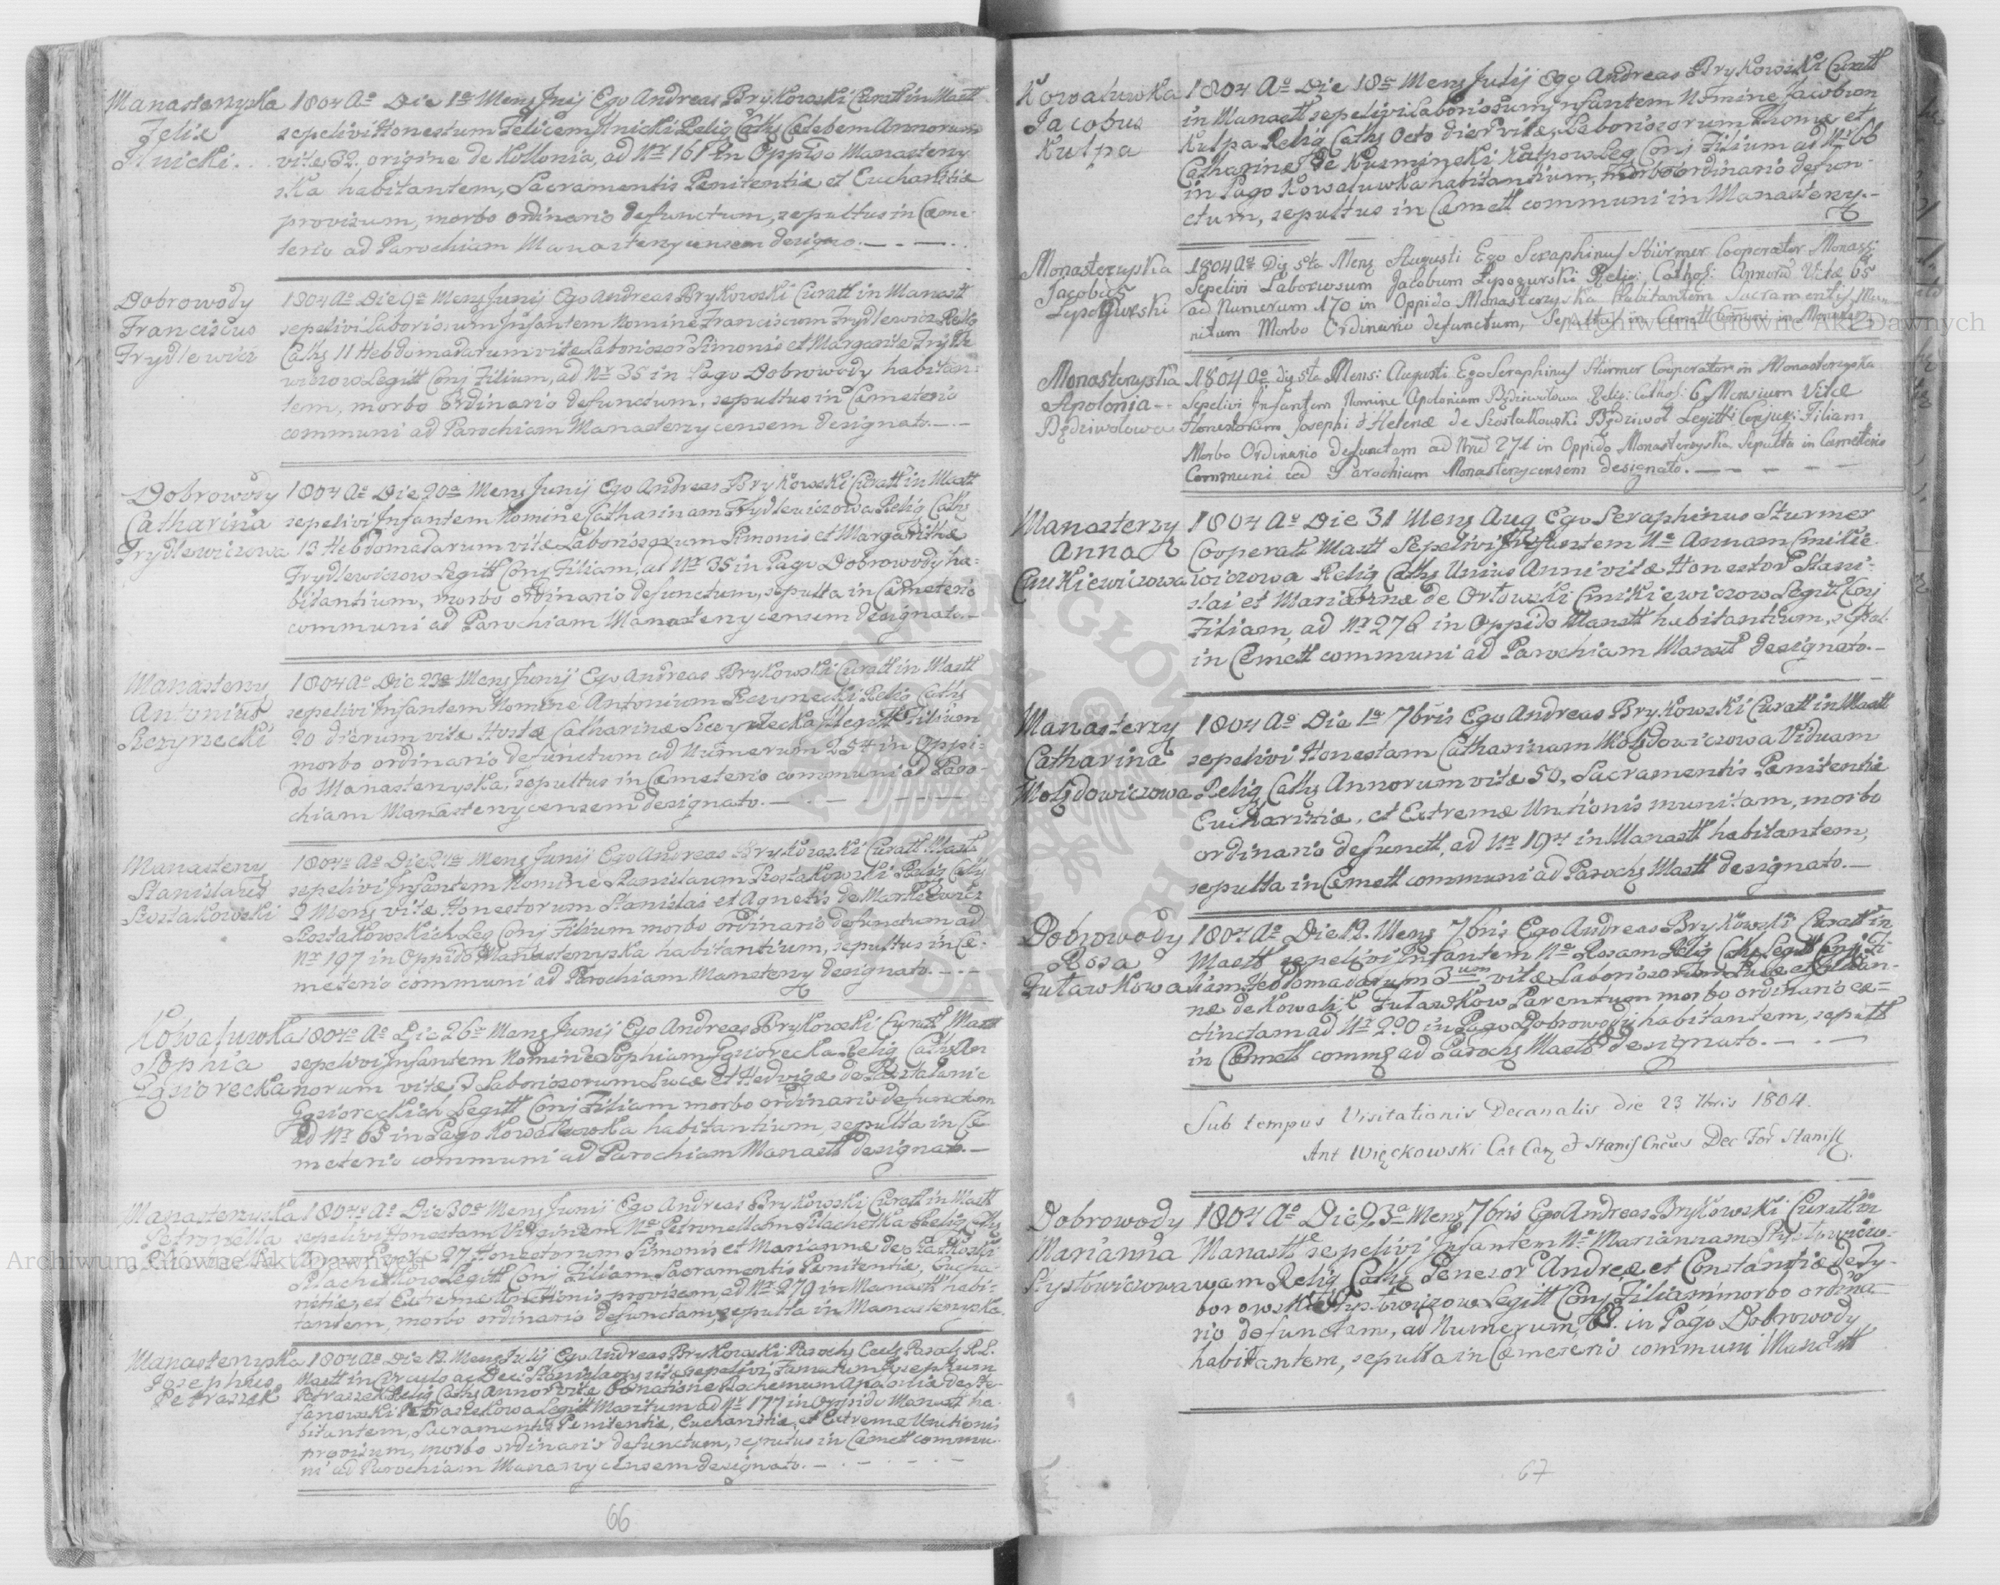 Manasteryska
Felix
Ilnicki
1804 Aº Die 1ª Mens Junij Ego Andreas Brykowski Curatt in Mastt
sepelivi Honestum Felicem Ilnicki Relig Cath Celebem Annorum
vitæ 32. origine de Kollonia, ad Nr 161 in Oppido Manastery
ska habitantem, Sacramentis Penitentiæ et Eucharistiæ
provisum, morbo ordinario defunctum, sepultus in Cæme-
terio ad Parochiam Manasterycensem designato.
Dobrowody
Franciscus
Frydlewicz
1804 Aº Die 9ª Mens Junij Ego Andreas Brykowski Curatt in Manastt
sepelivi Laboriosum Infantem Nomine Franciscum Frydlewicz Relig
Cath 11 Hebdomadarum vitæ Laborios Simonis et Margarithæ Frydle
wiczow Legitt Conj Filium, ad Nr 35 in Pago Dobrowody habitan-
tem, morbo ordinario defunctum, sepultus in Cæmeterio
communi ad Parochiam Manasterycensem designato.
Dobrowody
Catharina
Frydlewiczowa
1804 Aº Die 20ª Mens Junij Ego Andreas Brykowski Curatt in Mastt
sepelivi Infantem Nomine Catharinam Frydlewiczowa Relig Cath
13 Hebdomadarum vitæ Laboriosorum Simonis et Margarithæ
Frydlewiczow Legitt Conj Filiam, ad Nr 35 in Pago Dobrowody ha-
bitantium, morbo ordinario defunctum, sepulta in Cæmeterio
communi ad Parochiam Manasterycensem designato.
Manastery
Antonius
Rezynecki
1804 Aº Die 23ª Mens Junij Ego Andreas Brykowski Curatt in Mastt
sepelivi Infantem Nomine Antonium Rezynecki Relig Cath
20 dierum vitæ Catharinæ Filium
morbo ordinario defunctum ad Numerum 254 in Oppi-
do Manasteryska, sepultus in Cæmeterio communi ad Paro-
chiam Manasterycensem designato.
Manastery
Stanislaus
Szostakowski
1804 Aº Die 24ta Mens Junij Ego Andreas Brykowski Curatt Mastt
sepelivi Infantem Nomine Stanislaum Szostakowski Relig Cath
2 Mens vitæ Honestorum Stanislai et Agnetis de Markiewicz
Szostakowskich Leg Conj Filium morbo ordinario defunctum ad
Nr 197 in Oppido Manasteryska habitantium, sepultus in Cæ-
meterio communi ad Parochiam Manastery designato.
Kowaluwka
Sophia
Gąsiorecka
1804 Aº Die 26ta Mens Junij Ego Andreas Brykowski Curatt Mastt
sepelivi Infantem Nomine Sophiam Gąsiorecka Relig Cath An
norum vitæ 3 Laboriosorum Lucæ et Hedvigæ de
Gąsioreckich Legitt Conj Filiam morbo ordinario defunctam
ad Nr 65 in Pago Kowaluwka habitantium, sepulta in Cæ-
meterio communi ad Parochiam Manastt designato.
Manasteryska
Petronella
1804 Aº Die 30ª Mens Junij Ego Andreas Brykowski Curatt in Mastt
sepelivi Honestam Virginem Nº Petronellam Plachetka Relig Cath
27 Honestorum Simonis et Mariannæ de
Plachetkow Legitt Conj Filiam Sacramentis Penitentiæ, Eucha-
ristiæ, et Extremæ Unctionis provisam, ad Nr 279 in Manastt habi-
tantem, morbo ordinario defunctam, sepulta in Manasteryska.
Manasteryska
Josephus
Petraszek
1804 Aº Die 12. Mens Julij Ego Andreas Brykowski Paroch
Mastt in Circulo ac Dec: Stanislaov sepelivi Josephum
Petraszek Relig Cath Annor vitæ Apoloniæ de Ste-
fanowski Petraszekowa Legitt Maritum ad Nr 177 in Oppido Manastt ha-
bitantem, Sacramentis Penitentiæ, Eucharistiæ, et Extremæ Unctionis
provisum, morbo ordinario defunctum, sepultus in Cæmett commu-
ni ad Parochiam Manasterycensem designato.
66
Kowaluwka
Jacobus
Kulpa
1804 Aº Die 18ª Mens Julij Ego Andreas Brykowski Curatt
in Manastt sepelivi Laboriosum Infantem Nomine Jacobum
Kulpa Relig Cath Octo dier vitæ, Laboriosorum Thomæ et
Catharinæ de Kuzminski Kulpow Leg Conj Filium ad Nr 66
in Pago Kowaluwka habitantium, morbo ordinario defun-
ctum, sepultus in Cæmett communi in Manastery.
Monasteryska
Jacobus
Lypogurski
1804 Aº Die 5ta Mens Augusti Ego Seraphinus Stürmer Cooperator Monast:
Sepelivi Laboriosum Jacobum Lypogurski Relig: Cathol: Annorũ Vitæ 65
ad Numerum 170 in Oppido Monasteryska Habitantem Sacramentis Mu-
nitum Morbo Ordinario defunctum, Sepultus in Cæmett
Monasteryska
Apolonia
Będziwolowa
1804 Aº die 5ta Mens: Augusti Ego Seraphinus Stürmer Cooperator in Monasteryska
Sepelivi Infantem Nomine Apoloniam Relig: Cathol: 6 Mensium Vitæ
Honestorum Josephi & Helenæ de Szostakowski Będziwol Legitti Conjugi: Filiam
Morbo Ordinario Defunctam ad Nrũ 271 in Oppido Monasteryska Sepulta in Cæmeterio
Communi ad Parochiam Monasterycensem designato.
Manasterzy
Anna
Cmikiewiczowa
1804 Aº Die 31 Mens Aug Ego Seraphinus Sturmer
Cooperatt Mastt Sepelivi Infantem Nº Annam Cmikie-
wiczowa Relig Cath Unius Anni vitæ Honestor Stani-
slai et Mariannæ de Orłowski Cmikiewiczow Legitt Conj
Filiam, ad Nr 276 in Oppido Manstt habitantium, sepul.
in Cæmett communi ad Parochiam Manstt designato.
Manasterzy
Catharina
Mołdowiczowa
1804 Aº Die 1ª 7bris Ego Andreas Brykowski Curatt in Mastt
sepelivi Honestam Catharinam Mołdowiczowa Viduam
Relig Cath Annorum vitæ 50, Sacramentis Pænitentiæ
Eucharistiæ, et Extremæ Unctionis munitam, morbo
ordinario defunctt, ad Nr 194 in Manastt habitantem,
sepulta in Cæmett communi ad Paroch Mastt designato.
Dobrowody
Rosa
Futawkowa
1804 Aº Die 12. Mens 7bris Ego Andreas Brykowski Curatt in
Mastt sepelivi Infantem Nº Rosam Relig Cath Legitt Conj Fi-
liam Hebdomadarum 3um vitæ Laboriosorum Lucæ et
næ de Kowalik Futawkow Parentum morbo ordinario ex-
tinctam ad Nr 220 in Pago Dobrowody habitantem, sepultt
in Cæmett comm ad Paroch Mastt designato.
Sub tempus Visitationis Decanalis die 23 7bris 1804.
Ant Więckowski
Dobrowody
Marianna
Systowiczowa
1804 Aº Die 23ª Mens 7bris Ego Andreas Brykowski Curatt in
Manastt sepelivi Infantem Nº Mariannam
wam Relig Cath Andreæ et Constantiæ de Ty-
borowski Legitt Conj Filiam morbo ordina-
rio defunctam, ad Numerum in Pago Dobrowody
habitantem, sepulta in Cæmeterio communi Manastt
67
Archiwum Główne Akt Dawnych
Archiwum Główne Akt Dawnych
ARCHIWUM GŁÓWNE AKT DAWNYCH